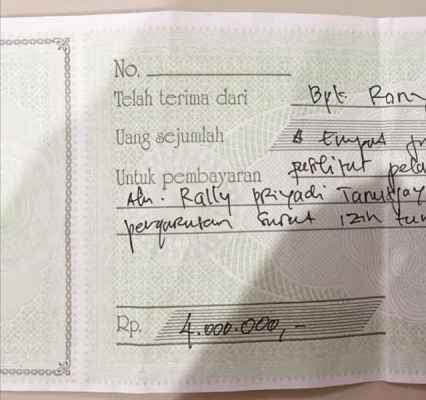 No.
Telah terima dari Bpk. Rany
Uang sejumlah Empat
Untuk pembayaran
Aln. Rally Priyadi
pengurusan surat izin
Rp. 4.000.000,-